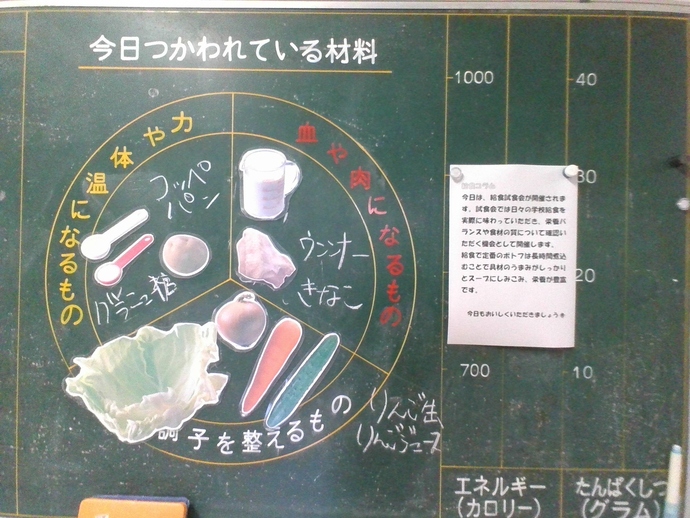 今日つかわれている材料
力や体温になるもの
血や肉になるもの
コッペ
パン
グラニュ糖
ウンナー
きなこ
調子を整えるもの
りんご生
りんごジュース
1000
700
エネルギー
(カロリー)
40
30
20
10
たんぱくしつ
(グラム)
給食コラム
今日は、給食試食会が開催されま
す。試食会では日々の学校給食を
実際に味わっていただき、栄養バ
ランスや食材の質について確認い
ただく機会として開催します。
給食で定番のポトフは長時間煮込
むことで具材のうまみがしっかり
とスープにしみこみ、栄養が豊富
です。
今日もおいしくいただきましょう